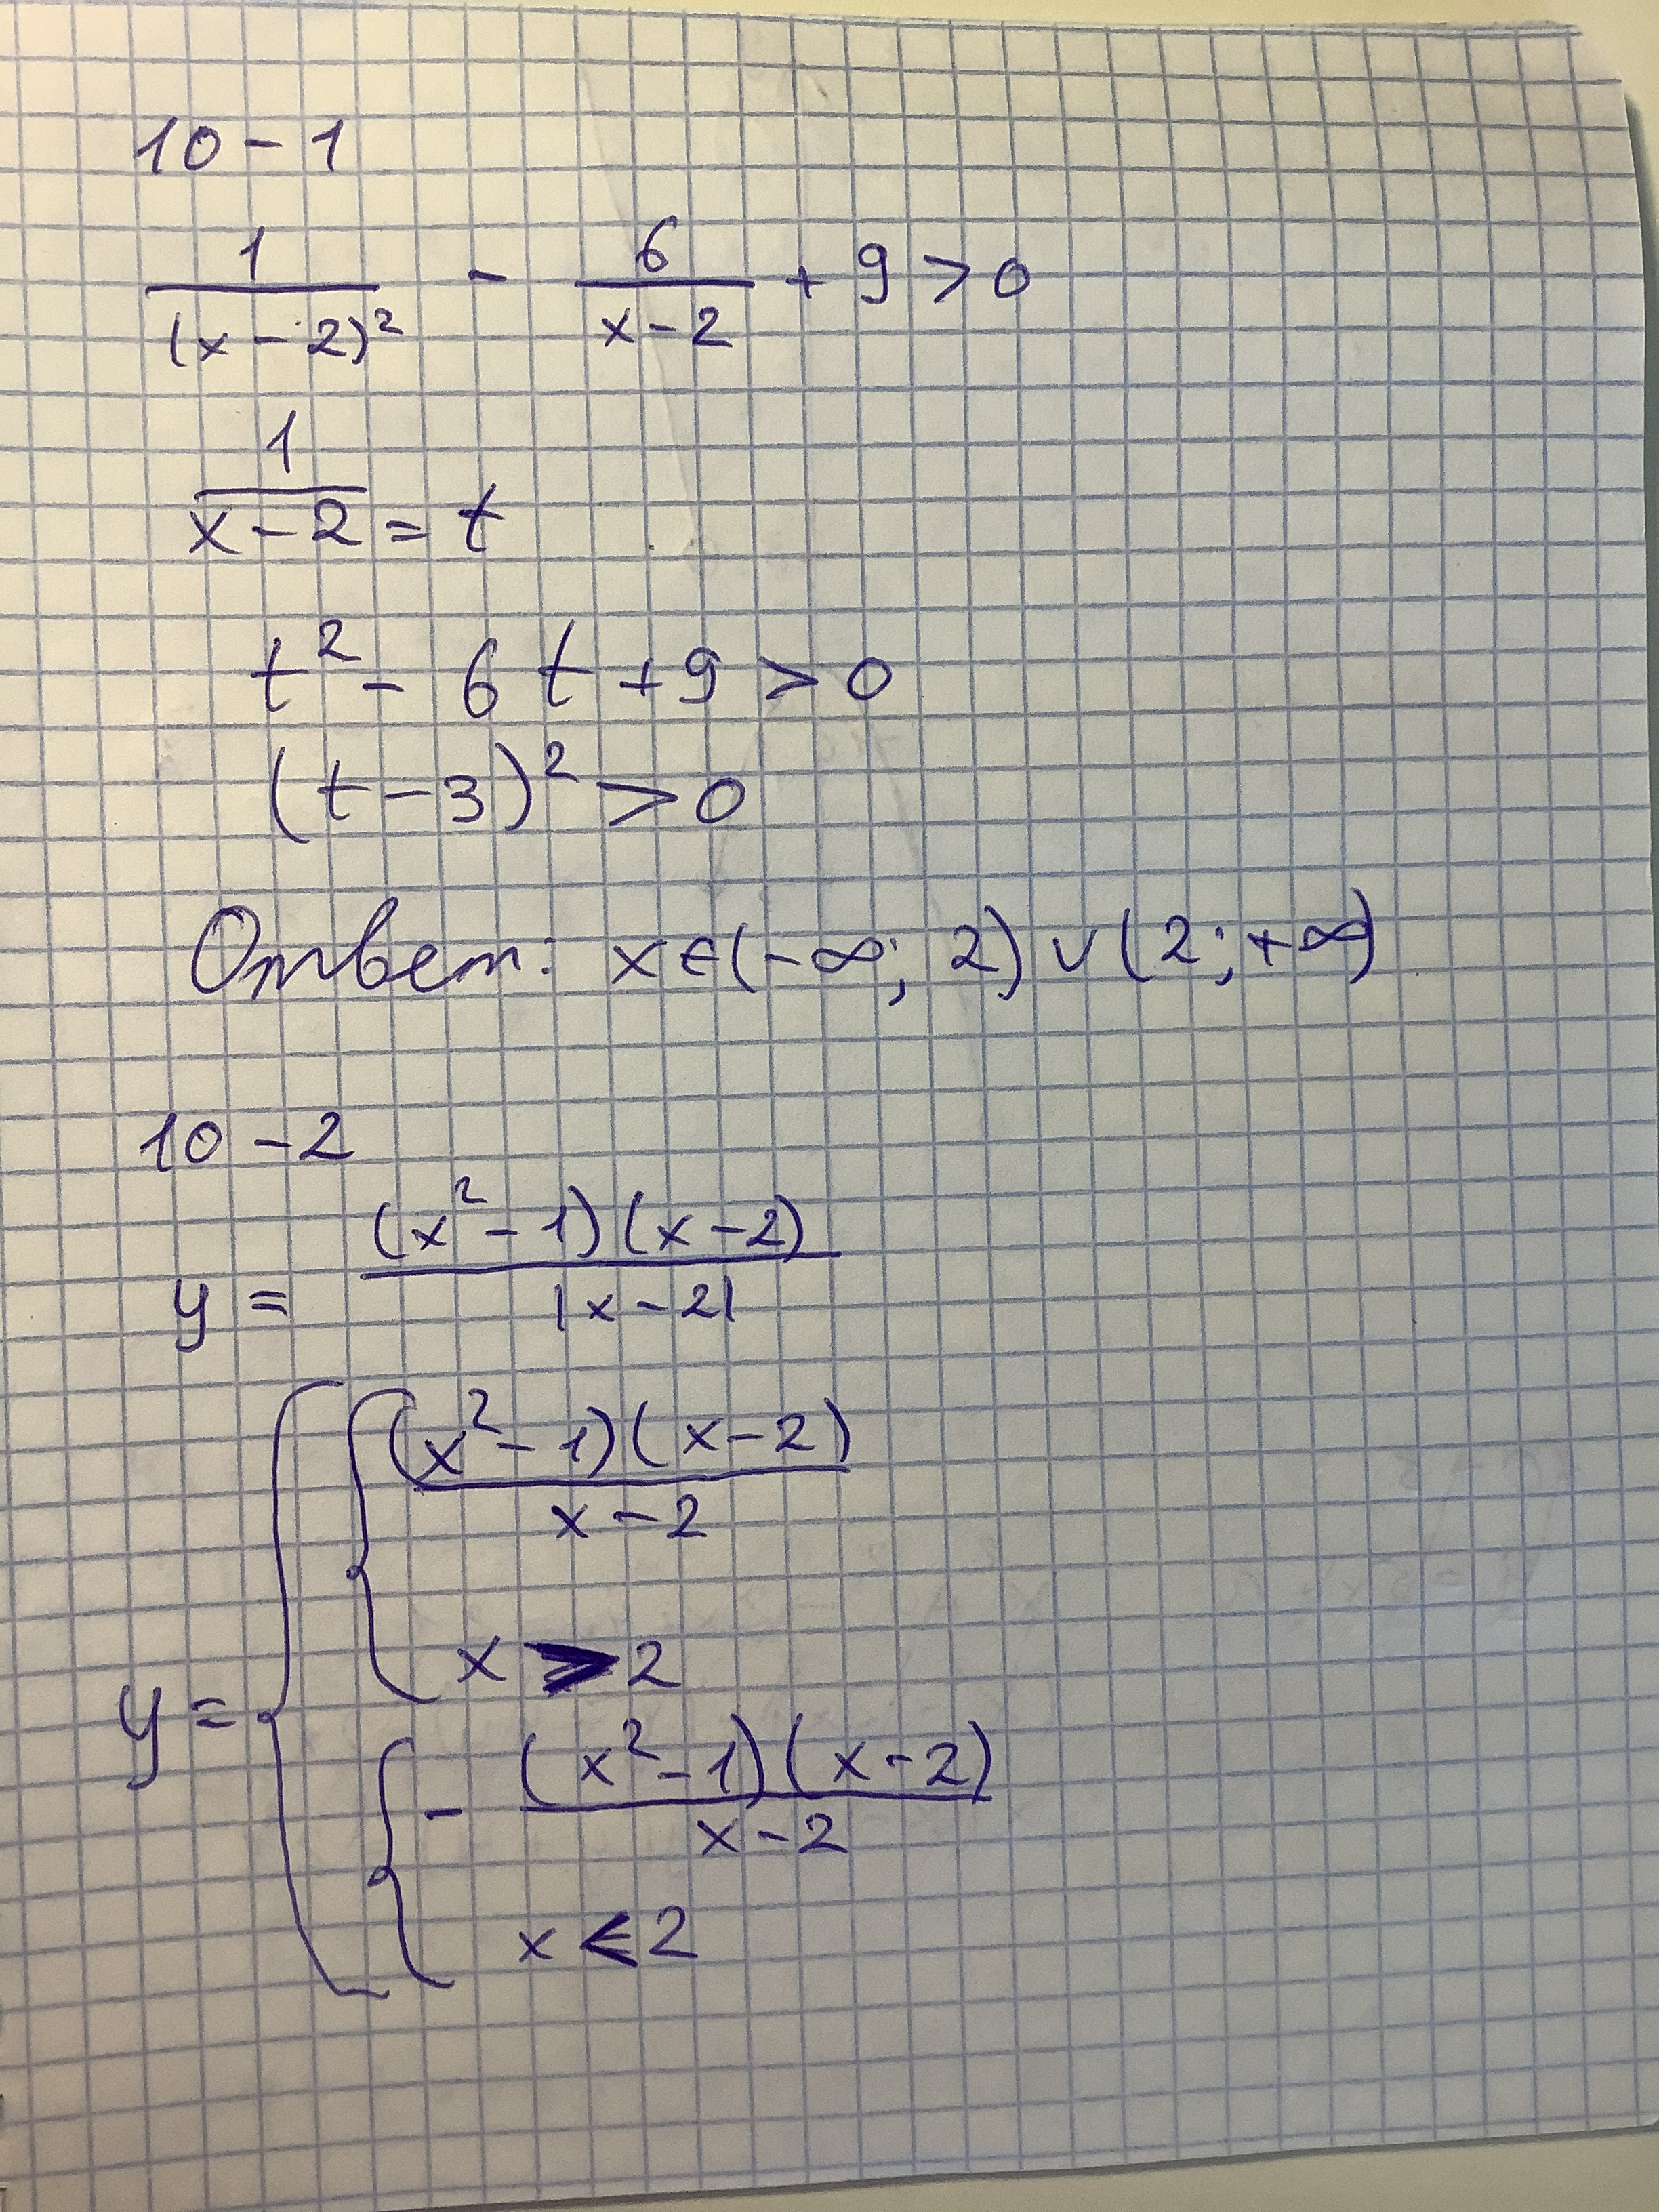 10-1
1/(x-2)² - 6/(x-2) + 9 > 0
1/(x-2) = t
t² - 6t + 9 > 0
(t-3)² > 0
Ответ: x∈(-∞; 2)∨(2; +∞)
10-2
y = (x²-1)(x-2)/|x-2|
y = { { (x²-1)(x-2)/(x-2)
x ⩾ 2
{ - (x²-1)(x-2)/(x-2)
x ⩽ 2